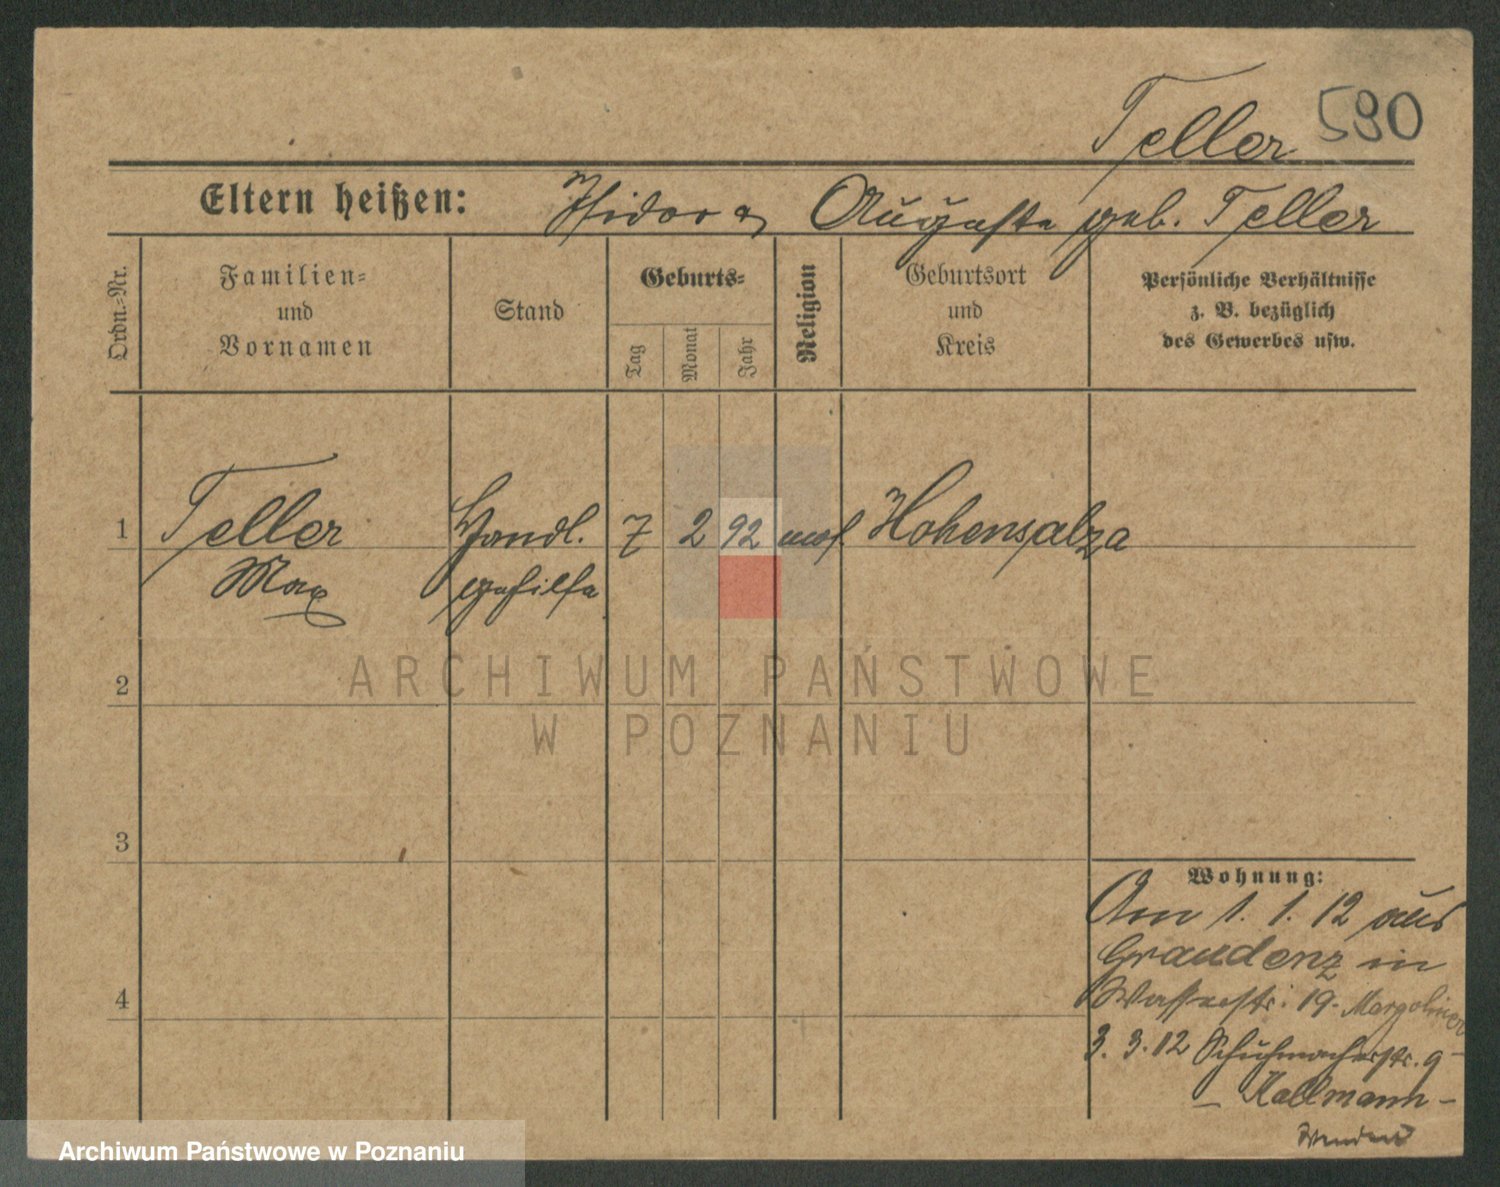 Teller 590
Eltern heißen: Isidor & Auguste geb. Teller
Ordn.-Nr.
Familien-
und
Vornamen
Stand
Geburts-
Tag
Monat
Jahr
Religion
Geburtsort
und
Kreis
Persönliche Verhältnisse
z. B. bezüglich
des Gewerbes usw.
1 Teller Handl. 7 2 92 mos. Hohensalza
Max gehilfe
2
3
4
ARCHIWUM PAŃSTWOWE
W POZNANIU
Wohnung:
Am 1. 1. 12 aus
Graudenz in
Wasserstr. 19. Margoliner
3. 3. 12 Schuhmacherstr. 9
– Kallmann –
Wenden
Archiwum Państwowe w Poznaniu